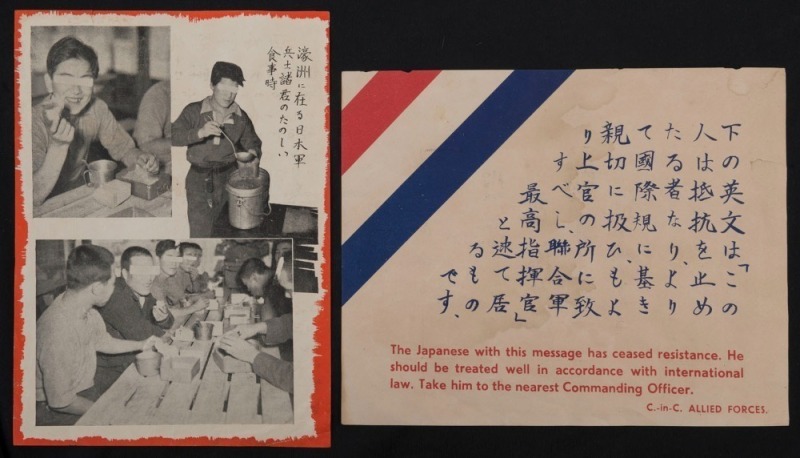 濠洲に在る日本軍
兵士諸君のたのしい
食事時
下の英文は「この
人は抵抗を止め
たる者なり、より
て國際規に基き
親切に扱ひ、もよ
り上官の所に致
すべし、聯合軍
最高指揮官」
と逑て居
るもの
です、
The Japanese with this message has ceased resistance. He
should be treated well in accordance with international
law. Take him to the nearest Commanding Officer.
C.-in-C. ALLIED FORCES.